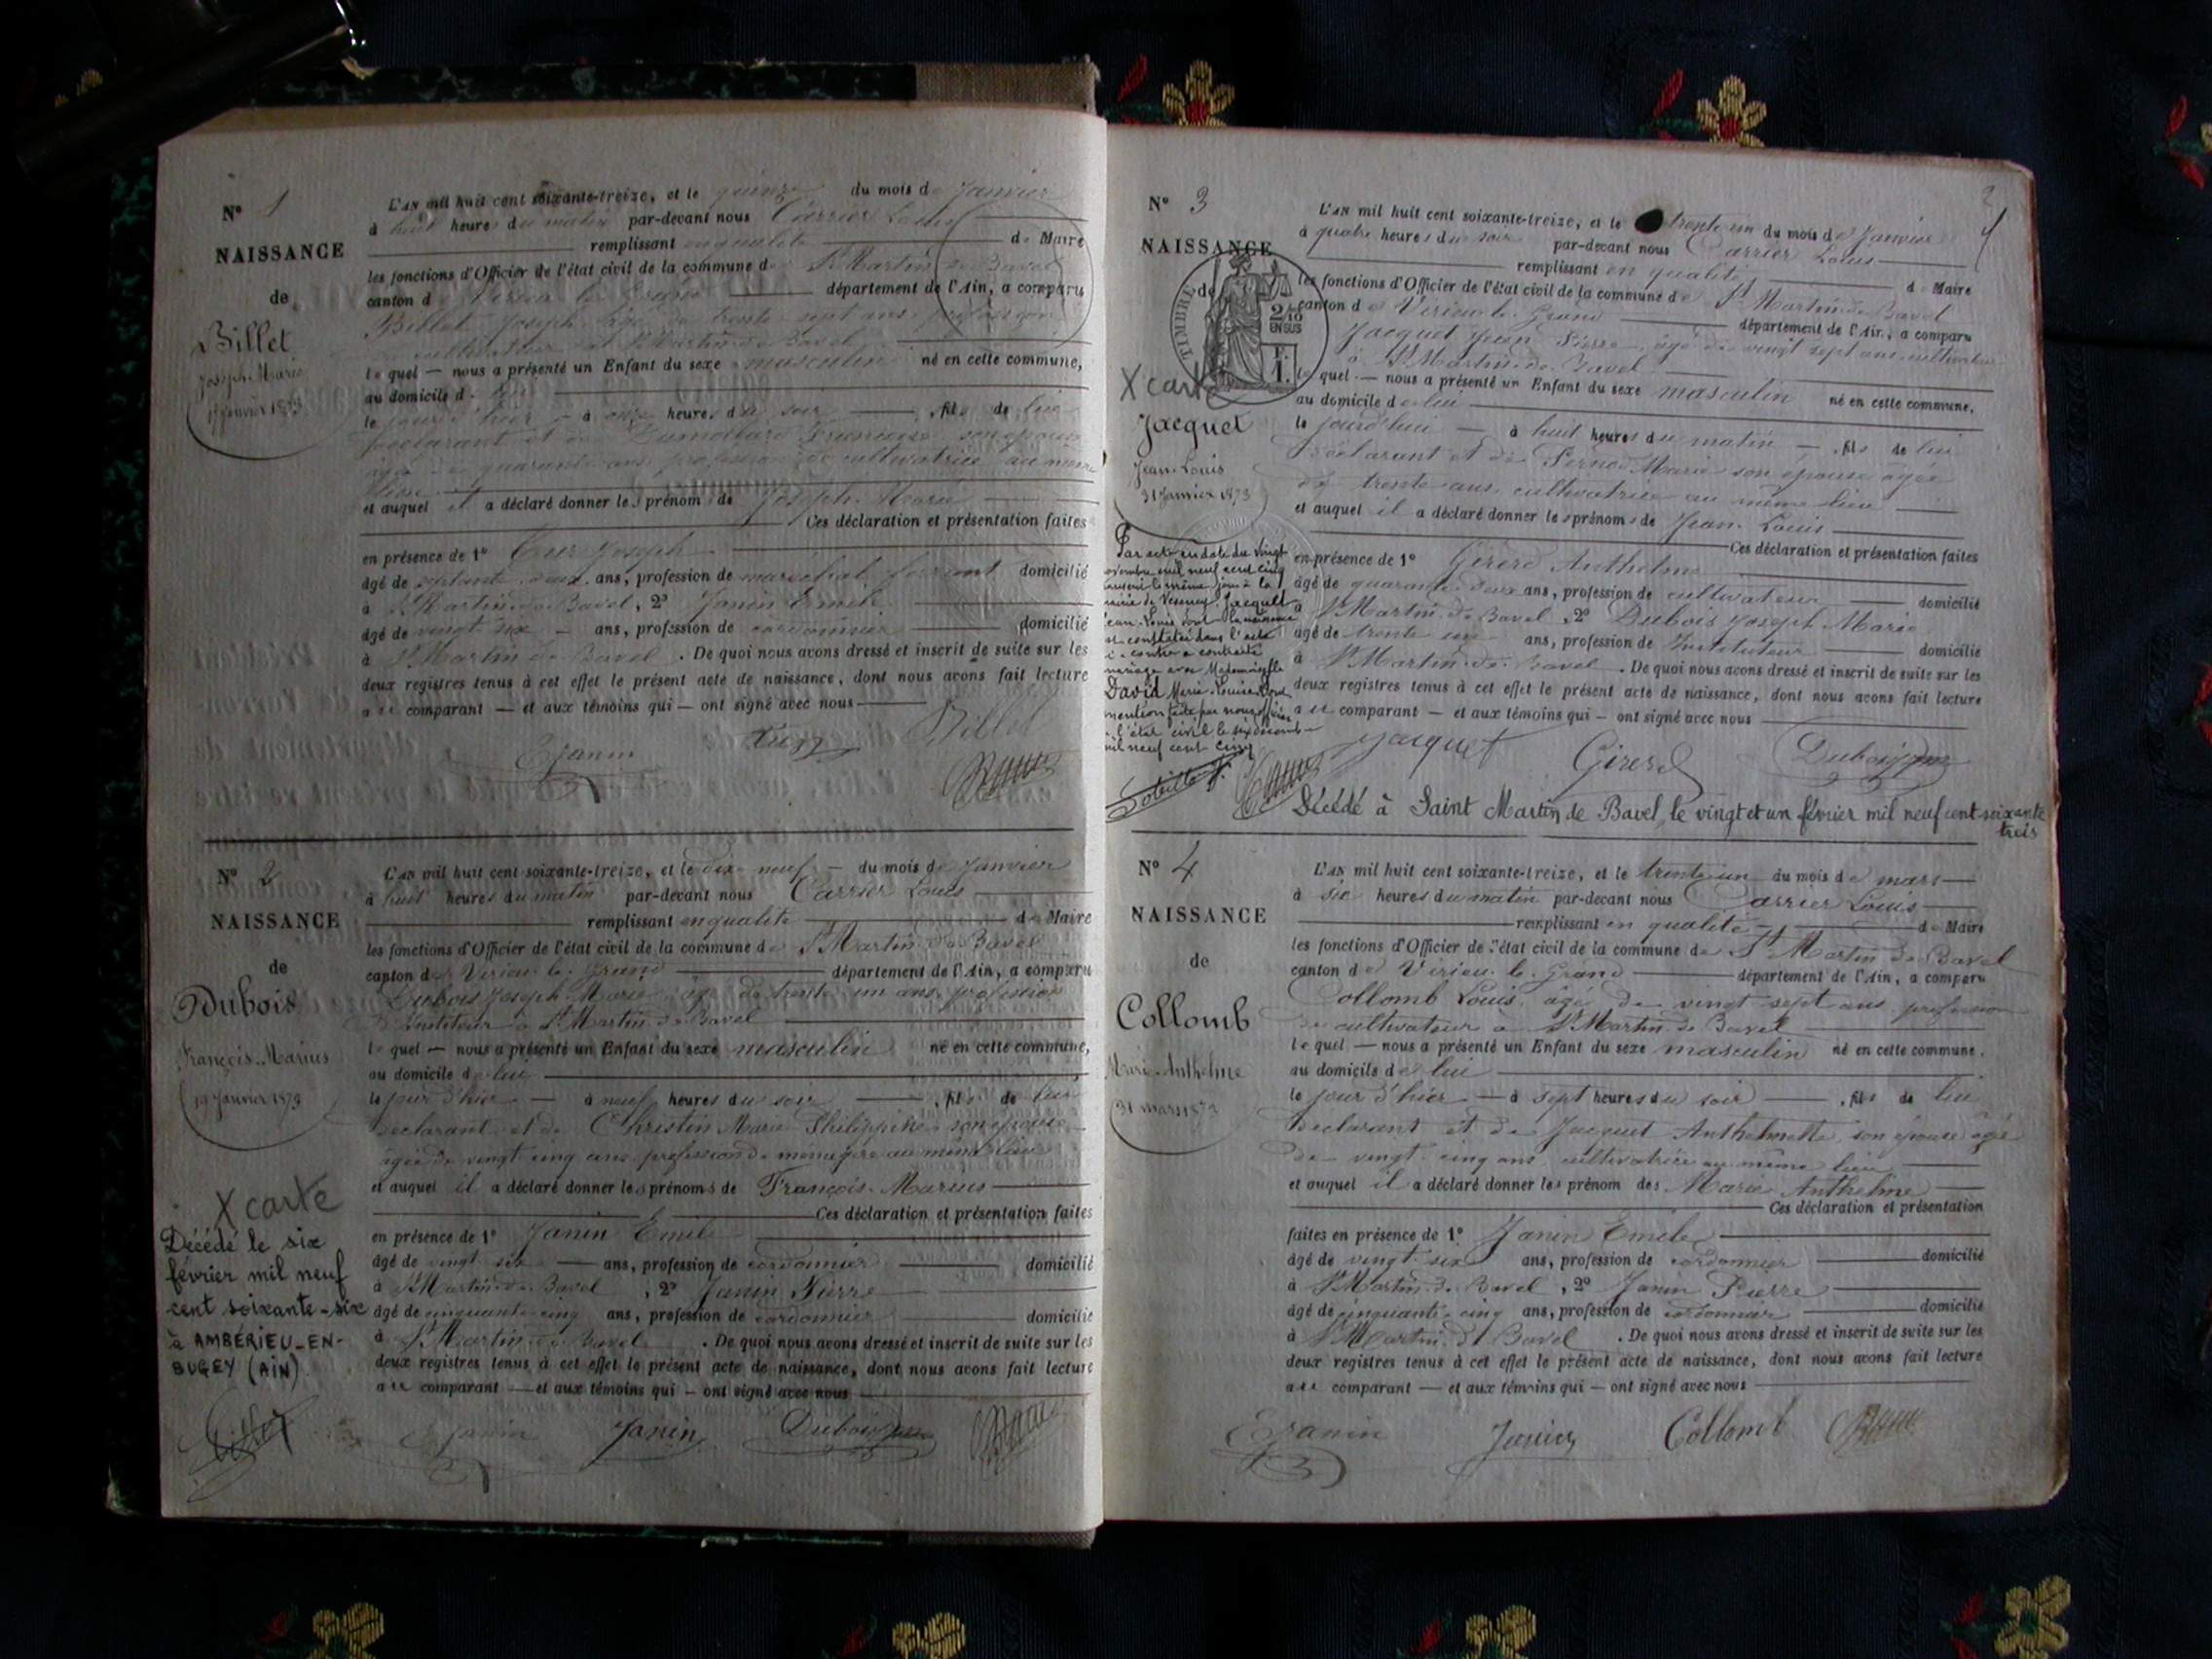 N° 1
NAISSANCE
de
Billet
Joseph Marie
L'AN mil huit cent soixante-treize, et le quinze du mois de Janvier
à huit heures du matin par-devant nous Carrier Louis
remplissant en qualité de Maire
les fonctions d'Officier de l'état civil de la commune de St Martin de Bavel
canton de Virieu le Grand département de l'Ain, a comparu
Billet Joseph âgé de trente sept ans profession
cultivateur à St Martin de Bavel
lequel — nous a présenté un Enfant du sexe masculin né en cette commune,
au domicile de lui
le jour d'hier — à onze heures du soir — , fils de lui
déclarant et de Françoise son épouse
âgée de quarante ans profession de cultivatrice au même
lieu
et auquel il a déclaré donner les prénom de Joseph Marie
Ces déclaration et présentation faites
en présence de 1° Joseph
âgé de septante deux ans, profession de maréchal ferrant domicilié
à St Martin de Bavel, 2° Janin Emile
âgé de vingt six — ans, profession de cordonnier domicilié
à St Martin de Bavel . De quoi nous avons dressé et inscrit de suite sur les
deux registres tenus à cet effet le présent acte de naissance, dont nous avons fait lecture
au comparant — et aux témoins qui — ont signé avec nous
EJanin Billet
N° 2
NAISSANCE
de
Dubois
François-Marius
19 Janvier 1873
X carte
Décédé le six
février mil neuf
cent soixante-six
à AMBÉRIEU-EN-
BUGEY (AIN)
L'AN mil huit cent soixante-treize, et le dix neuf — du mois de Janvier
à huit heures du matin par-devant nous Carrier Louis
remplissant en qualité de Maire
les fonctions d'Officier de l'état civil de la commune de St Martin de Bavel
canton de Virieu le Grand département de l'Ain, a comparu
Dubois Joseph Marie âgé de trente un ans profession
d'Instituteur à St Martin de Bavel
lequel — nous a présenté un Enfant du sexe masculin né en cette commune,
au domicile de lui
le jour d'hier — à neuf heures du soir — , fils de lui
déclarant et de Christin Marie Philippine son épouse
âgée de vingt cinq ans profession de ménagère au même lieu
et auquel il a déclaré donner les prénoms de François Marius
Ces déclaration et présentation faites
en présence de 1° Janin Emile
âgé de vingt six — ans, profession de cordonnier domicilié
à St Martin de Bavel , 2° Janin Pierre
âgé de cinquante cinq ans, profession de cordonnier domicilié
à St Martin de Bavel . De quoi nous avons dressé et inscrit de suite sur les
deux registres tenus à cet effet le présent acte de naissance, dont nous avons fait lecture
au comparant — et aux témoins qui — ont signé avec nous
EJanin Janin Dubois
N° 3
NAISSANCE
de
TIMBRE
2/10
EN SUS
X carte
Jacquet
Jean-Louis
31 Janvier 1873
Par acte en date du vingt
novembre mil neuf cent cinq
le même jour à la
mairie de Jacquet
Jean Louis dont la naissance
est constatée dans l'acte
ci-contre a contracté
mariage avec Mademoiselle
David Marie Louise dont
mention faite par nous officier
de l'état civil le six décembre
mil neuf cent cinq
L'AN mil huit cent soixante-treize, et le trente un du mois de Janvier
à quatre heures du soir par-devant nous Carrier Louis
remplissant en qualité de Maire
les fonctions d'Officier de l'état civil de la commune de St Martin de Bavel
canton de Virieu le Grand département de l'Ain, a comparu
Jacquet Jean Pierre âgé de vingt sept ans cultivateur
à St Martin de Bavel
lequel — nous a présenté un Enfant du sexe masculin né en cette commune,
au domicile de lui
le jourd'hui — à huit heures du matin — , fils de lui
déclarant et de Marie son épouse âgée
de trente ans, cultivatrice au même lieu
et auquel il a déclaré donner les prénoms de Jean Louis
Ces déclaration et présentation faites
en présence de 1° Girerd Anthelme
âgé de quarante deux ans, profession de cultivateur domicilié
à St Martin de Bavel , 2° Dubois Joseph Marie
âgé de trente un ans, profession de Instituteur domicilié
à St Martin de Bavel . De quoi nous avons dressé et inscrit de suite sur les
deux registres tenus à cet effet le présent acte de naissance, dont nous avons fait lecture
au comparant — et aux témoins qui — ont signé avec nous
Jacquet Girerd Dubois
Décédé à Saint Martin de Bavel, le vingt et un février mil neuf cent soixante
trois
N° 4
NAISSANCE
de
Collomb
Marie-Anthelme
31 mars 1873
L'AN mil huit cent soixante-treize, et le trente un du mois de mars
à six heures du matin par-devant nous Carrier Louis
remplissant en qualité de Maire
les fonctions d'Officier de l'état civil de la commune de St Martin de Bavel
canton de Virieu le Grand département de l'Ain, a comparu
Collomb Louis, âgé de vingt sept ans profession
de cultivateur à St Martin de Bavel
lequel — nous a présenté un Enfant du sexe masculin né en cette commune,
au domicile de lui
le jour d'hier — à sept heures du soir — , fils de lui
déclarant et de Jacquet Anthelmette son épouse âgée
de vingt cinq ans, cultivatrice au même lieu
et auquel il a déclaré donner les prénom des Marie Anthelme
Ces déclaration et présentation
faites en présence de 1° Janin Emile
âgé de vingt six ans, profession de cordonnier domicilié
à St Martin de Bavel , 2° Janin Pierre
âgé de cinquante cinq ans, profession de cordonnier domicilié
à St Martin de Bavel . De quoi nous avons dressé et inscrit de suite sur les
deux registres tenus à cet effet le présent acte de naissance, dont nous avons fait lecture
au comparant — et aux témoins qui — ont signé avec nous
EJanin Janin Collomb